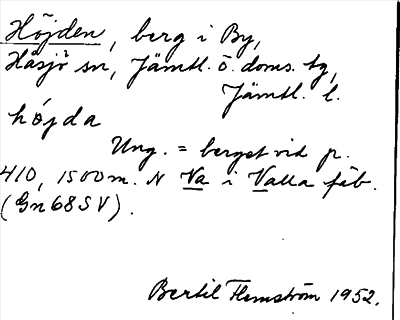 Höjden, berg i By,
Håsjö sn, Jämtl. ö. doms. tg,
Jämtl. l.
höjda
Ung. = berget vid p.
410, 1500 m. N Va i Valla fäb.
(Gn 68 SV).
Bertil Flemström 1952.